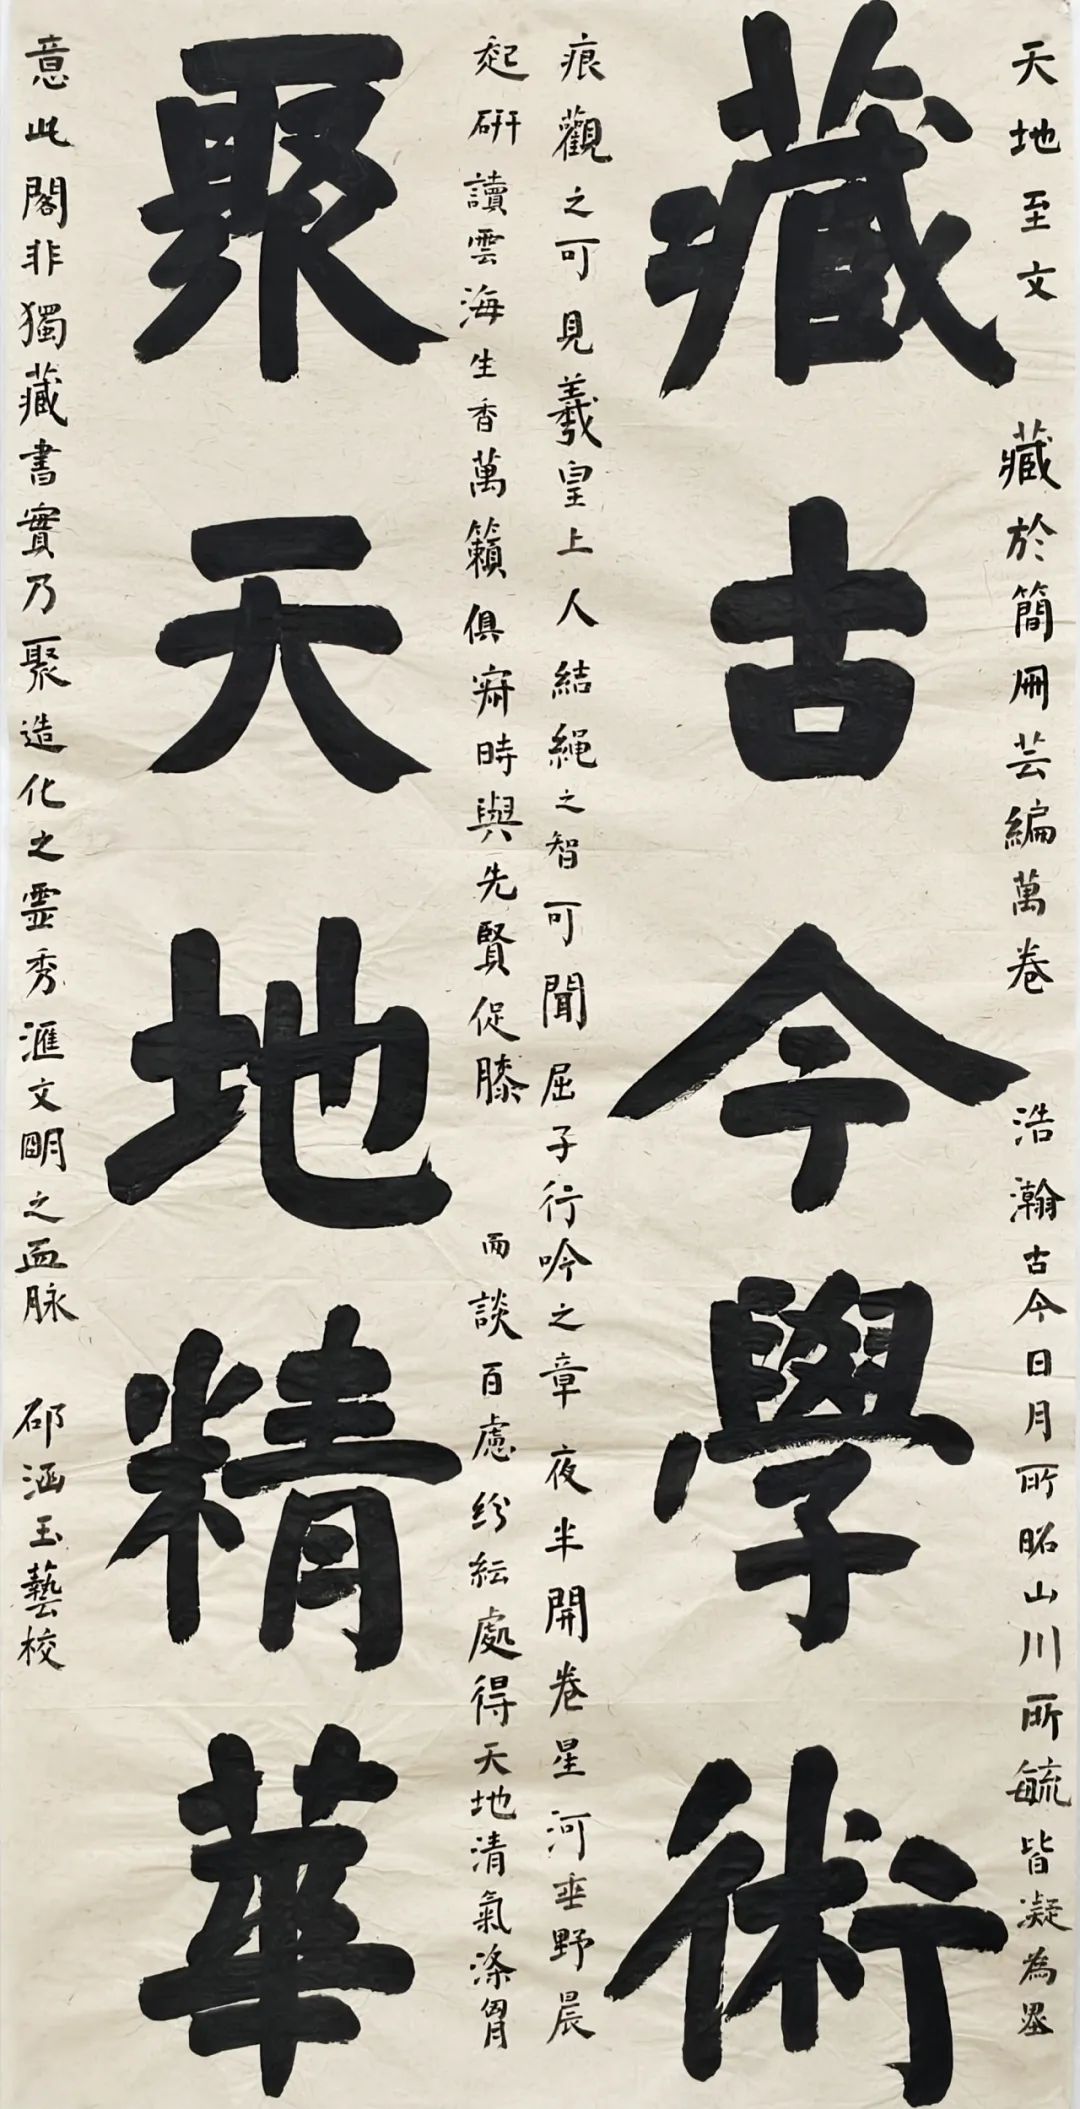 藏古今學術
聚天地精華
天地至文藏於簡冊芸編萬卷浩瀚古今日月所昭山川所毓皆凝為墨
痕觀之可見羲皇上人結繩之智可聞屈子行吟之章夜半開卷星河垂野晨
起研讀雲海生香萬籟俱寂時與先賢促膝而談百慮紛紜處得天地清氣滌胷
意此閣非獨藏書實乃聚造化之靈秀滙文明之血脉
邵涵玉藝校